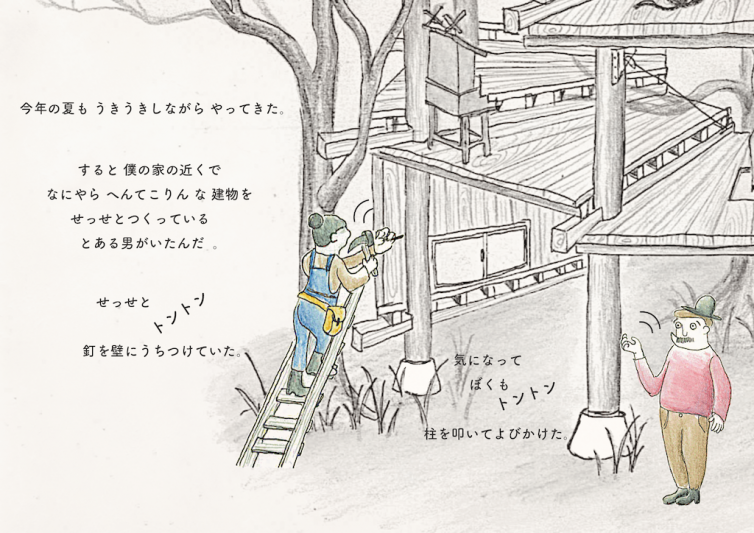 今年の夏も うきうきしながら やってきた。
すると 僕の家の近くで
なにやら へんてこりん な 建物を
せっせとつくっている
とある男がいたんだ 。
せっせと トントン
釘を壁にうちつけていた。
気になって
ぼくも トントン
柱を叩いてよびかけた。